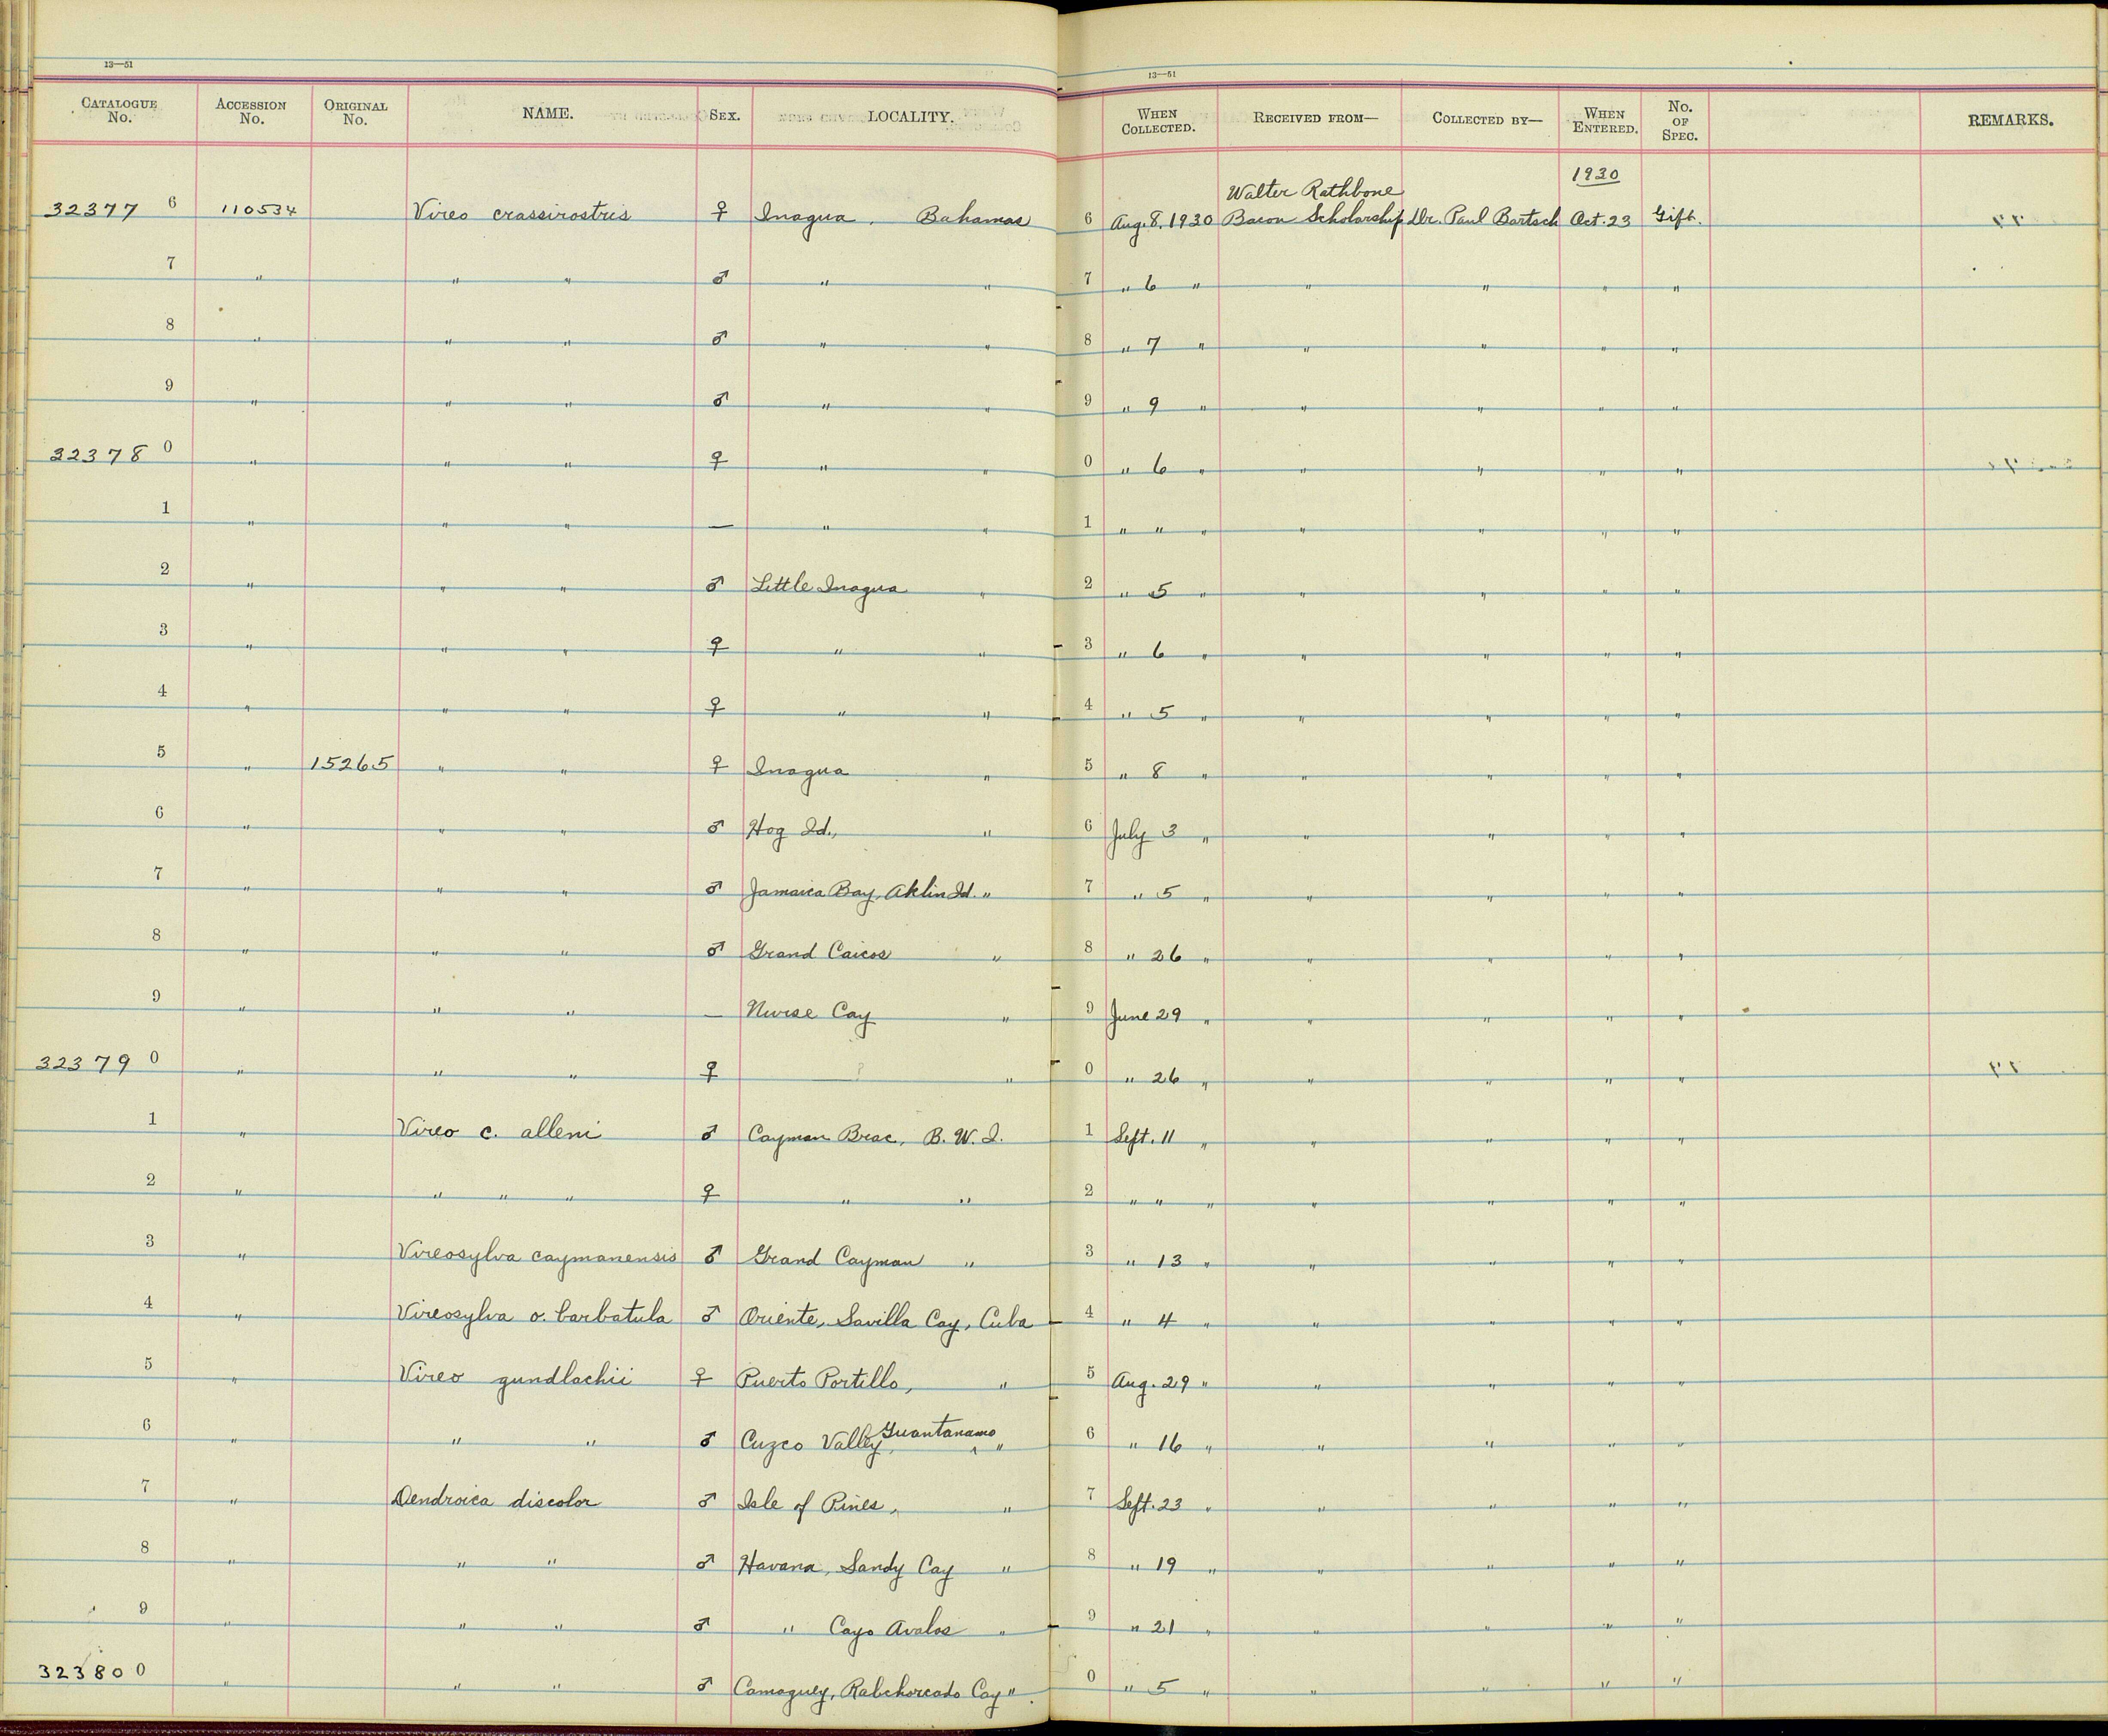 13—51
13—51
CATALOGUE No. ACCESSION No. ORIGINAL No. NAME. SEX. LOCALITY. WHEN COLLECTED. RECEIVED FROM— COLLECTED BY— WHEN ENTERED. No. OF SPEC. REMARKS.
1930
Walter Rathbone
32377 6 110534 Vireo crassirostris ♀ Inagua, Bahamas 6 Aug. 8. 1930 Bacon Scholarship Dr. Paul Bartsch Oct. 23 Gift.
7 " " " ♂ " " 7 " 6 " " " " "
8 " " " ♂ " " 8 " 7 " " " " "
9 " " " ♂ " " 9 " 9 " " " " "
32378 0 " " " ♀ " " 0 " 6 " " " " "
1 " " " — " " 1 " " " " " " "
2 " " " ♂ Little Inagua " 2 " 5 " " " " "
3 " " " ♀ " " 3 " 6 " " " " "
4 " " " ♀ " " 4 " 5 " " " " "
5 " 15265 " " ♀ Inagua " 5 " 8 " " " " "
6 " " " ♂ Hog Id., " 6 July 3 " " " " "
7 " " " ♂ Jamaica Bay, Aklin Id. " 7 " 5 " " " " "
8 " " " ♂ Grand Caicos " 8 " 26 " " " " "
9 " " " — Nurse Cay " 9 June 29 " " " " "
32379 0 " " " ♀ — ? " 0 " 26 " " " " "
1 " Vireo c. alleni ♂ Cayman Brac, B. W. I. 1 Sept. 11 " " " " "
2 " " " " ♀ " " 2 " " " " " " "
3 " Vireosylva caymanensis ♂ Grand Cayman " 3 " 13 " " " " "
4 " Vireosylva o. barbatula ♂ Oriente, Savilla Cay, Cuba 4 " 4 " " " " "
5 " Vireo gundlachii ♀ Puerto Portillo, " 5 Aug. 29 " " " " "
6 " " " ♂ Cuzco Valley, Guantanamo " 6 " 16 " " " " "
7 " Dendroica discolor ♂ Isle of Pines, " 7 Sept. 23 " " " " "
8 " " " ♂ Havana, Sandy Cay " 8 " 19 " " " " "
9 " " " ♂ " Cayo Avalos " 9 " 21 " " " " "
32380 0 " " " ♂ Camaguey, Rabihorcado Cay " 0 " 5 " " " " "